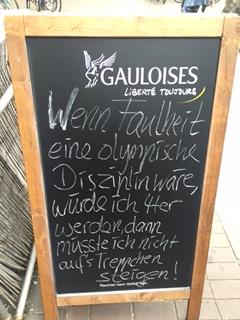 GAULOISES
LIBERTÉ TOUJOURS
Wenn Faulheit
eine olympische
Disziplin wäre,
würde ich 4ter
werden, dann
müsste ich nicht
auf's Treppchen
steigen!
Rauchen kann tödlich sein.